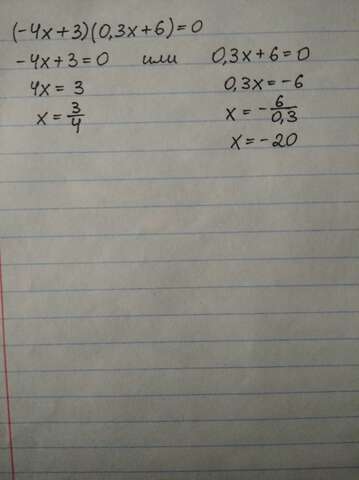 (-4x+3)(0,3x+6)=0
-4x+3=0 или 0,3x+6=0
4x=3 0,3x=-6
x=3/4 x=-6/0,3
x=-20